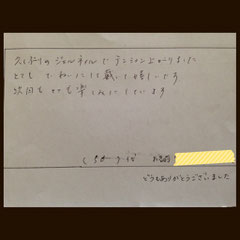 久しぶりのジェルネイルでテンション上がりました
とても ていねいにして戴いて嬉しいです
次回もとても楽しみにしています
お名前
どうもありがとうございました